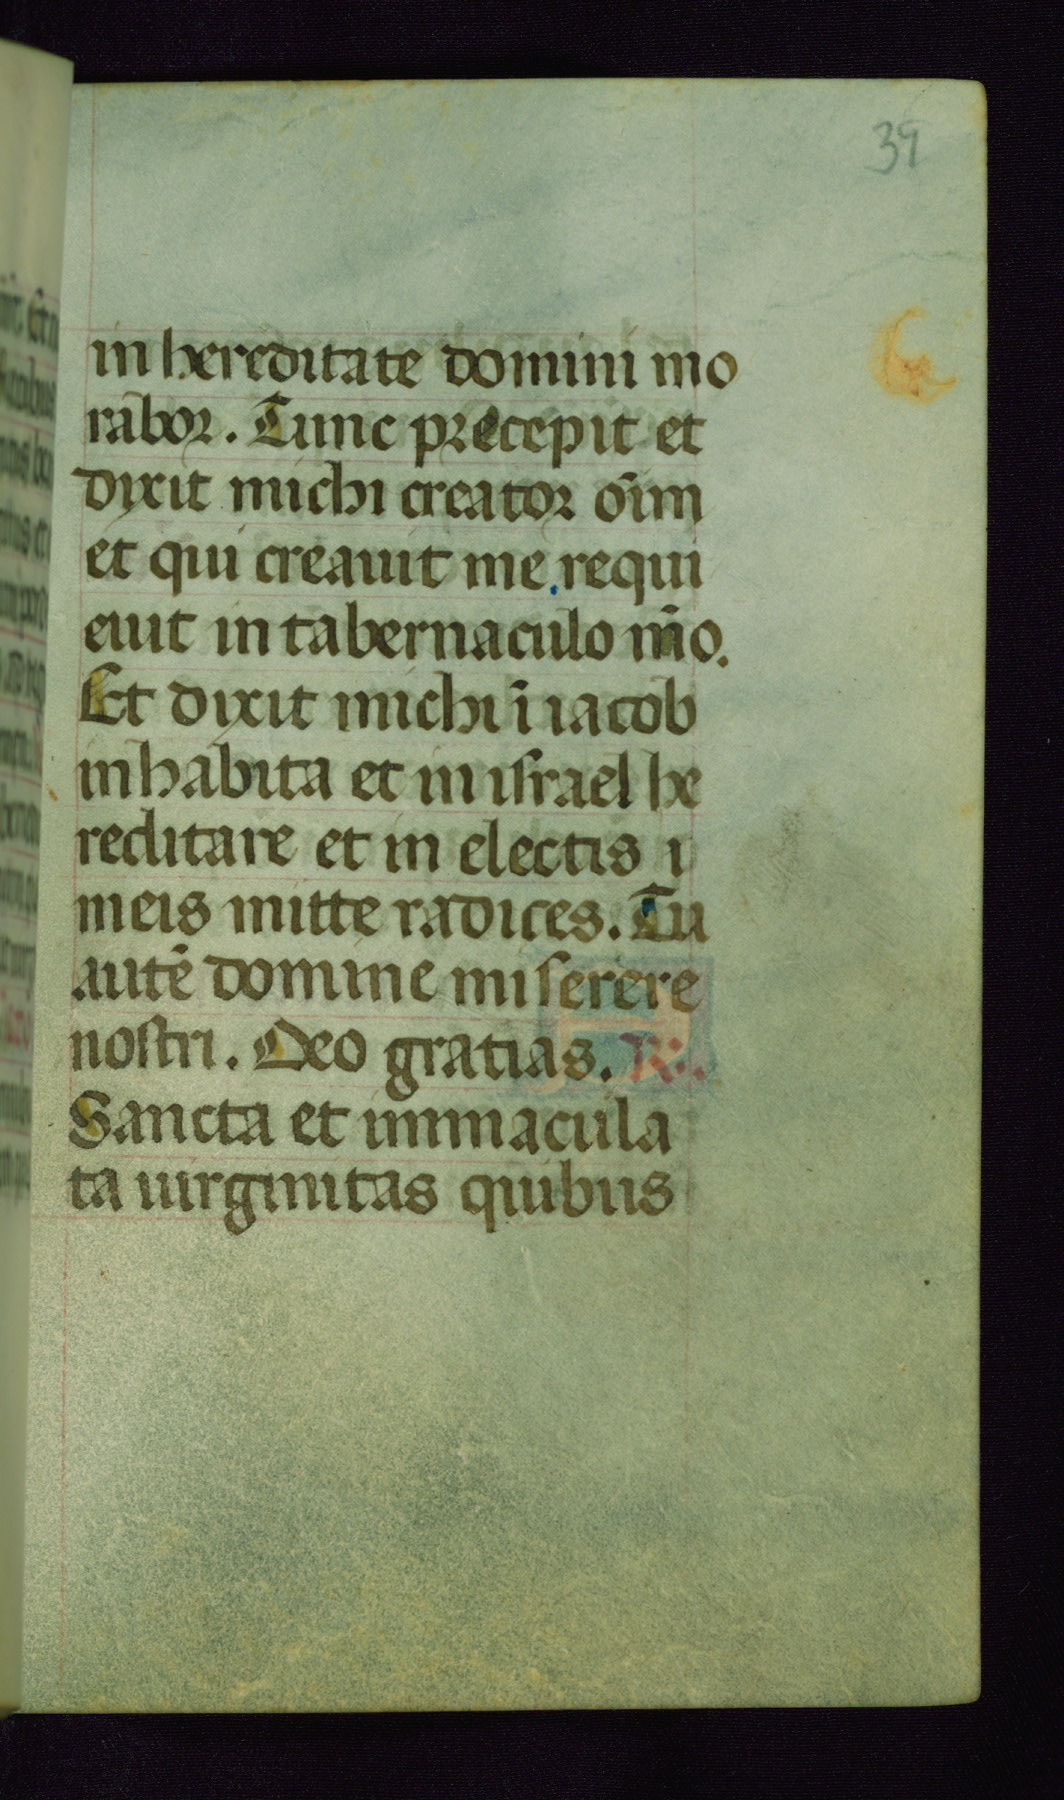 39
in hereditate domini mo
rabor. Tunc precepit et
dixit michi creator oīm
et qui creauit me requi
euit in tabernaculo m̄o.
Et dixit michi ī iacob
inhabita et in israel he
reditare et in electis i
meis mitte radices. Tu
autē domine miserere
nostri. Deo gratias. R.
Sancta et immacula
ta uirginitas quibus